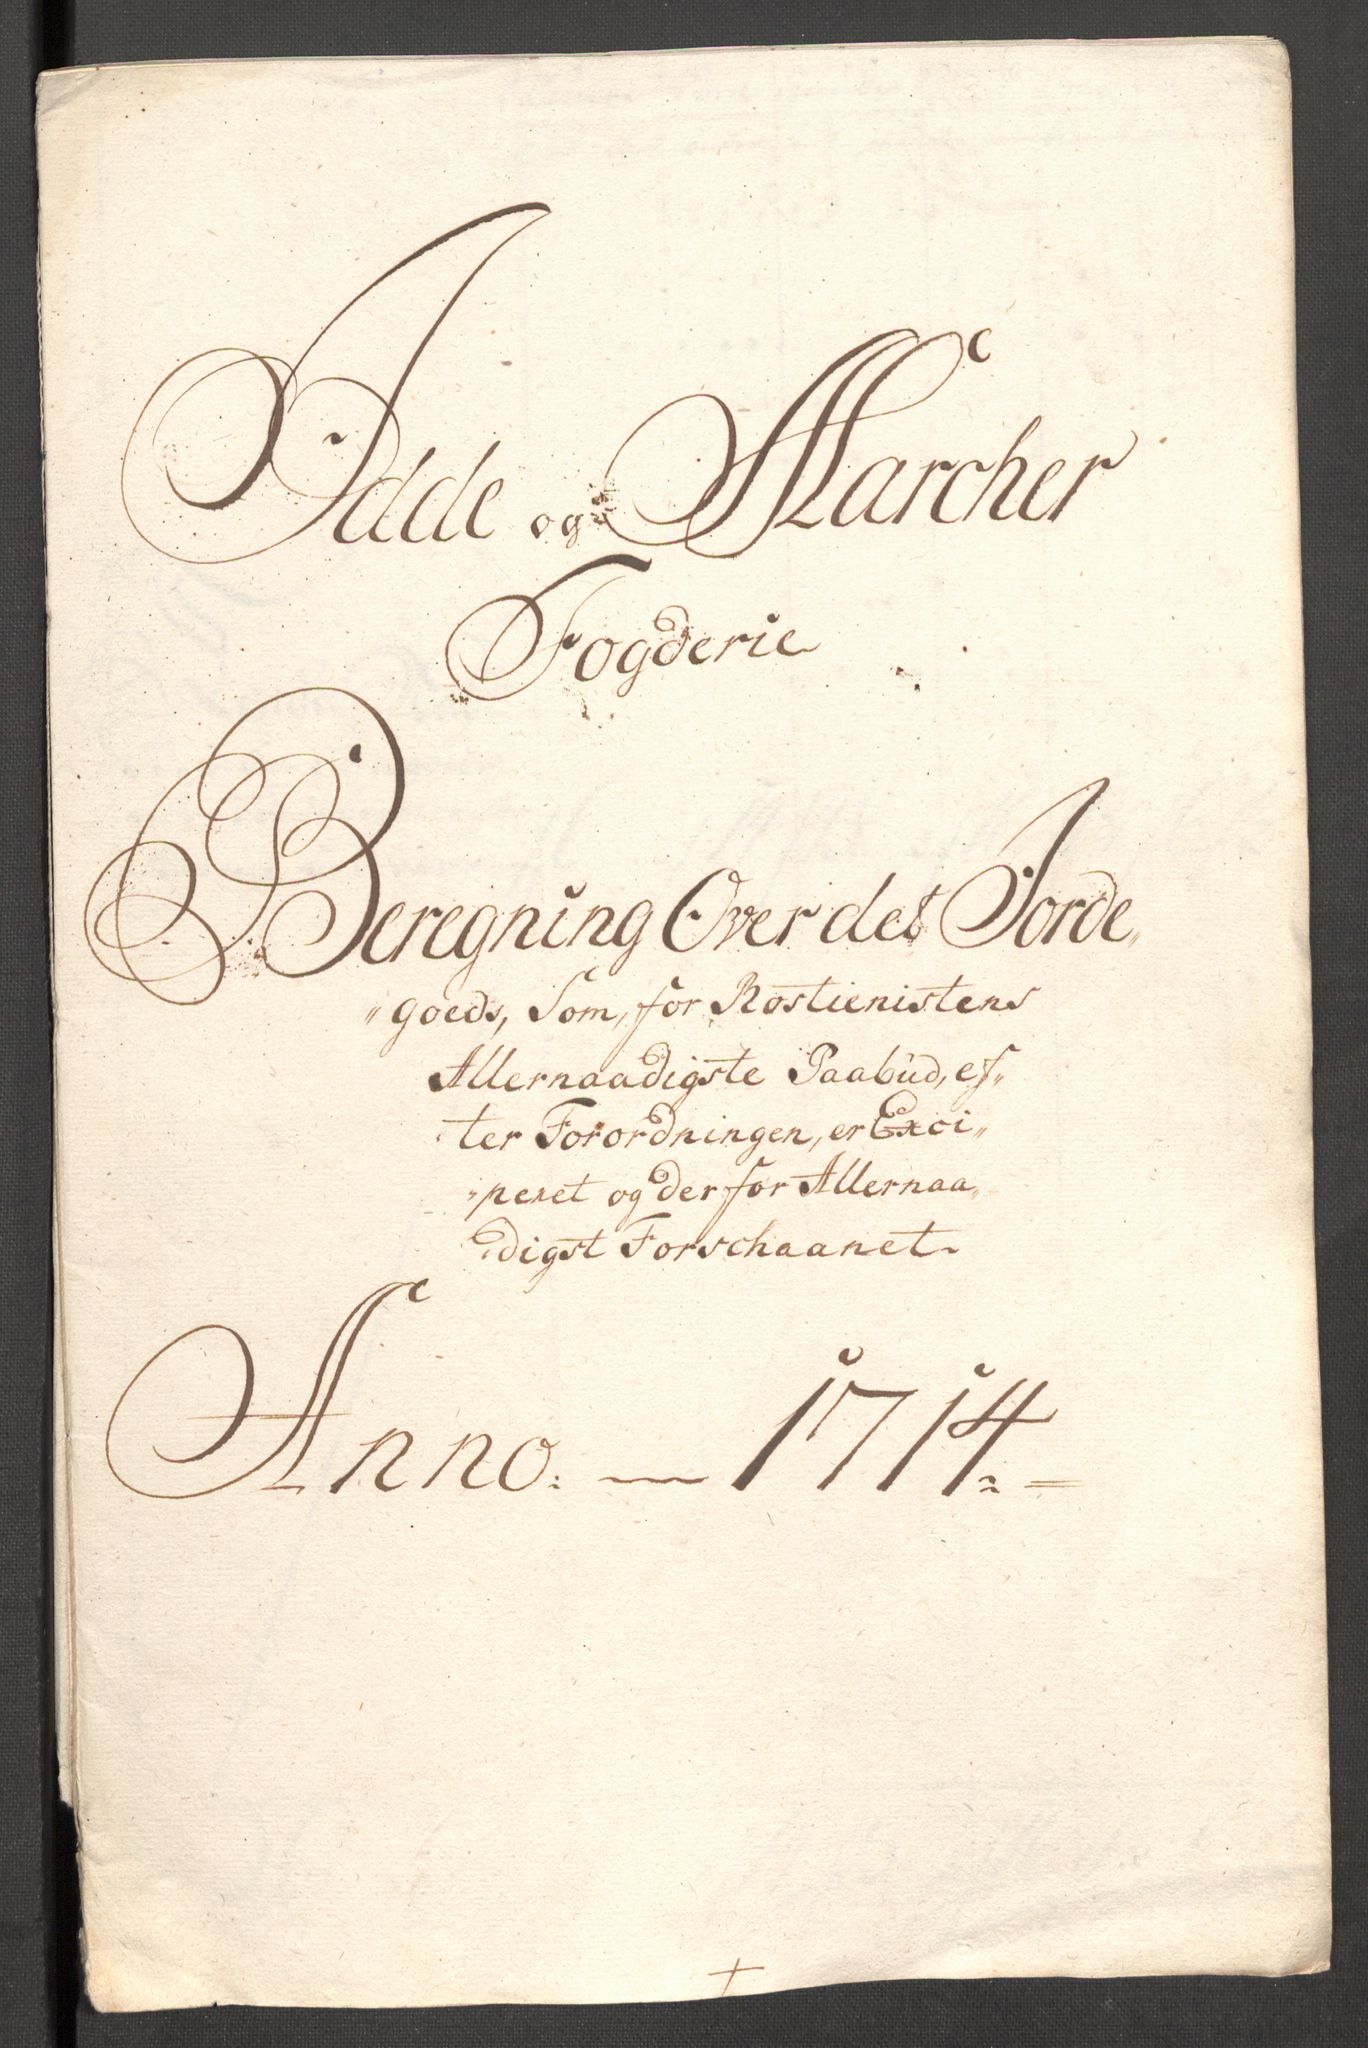 Idde og Marcher
Fogderie
Beregning Over det Jorde„
„goeds, Som, for Rostienistens
Allernaadigste Paabud, ef„
ter Forordningen, er Exci„
„peret og der for Allernaa„
digst Forschaanet.
Anno. — 1714. =